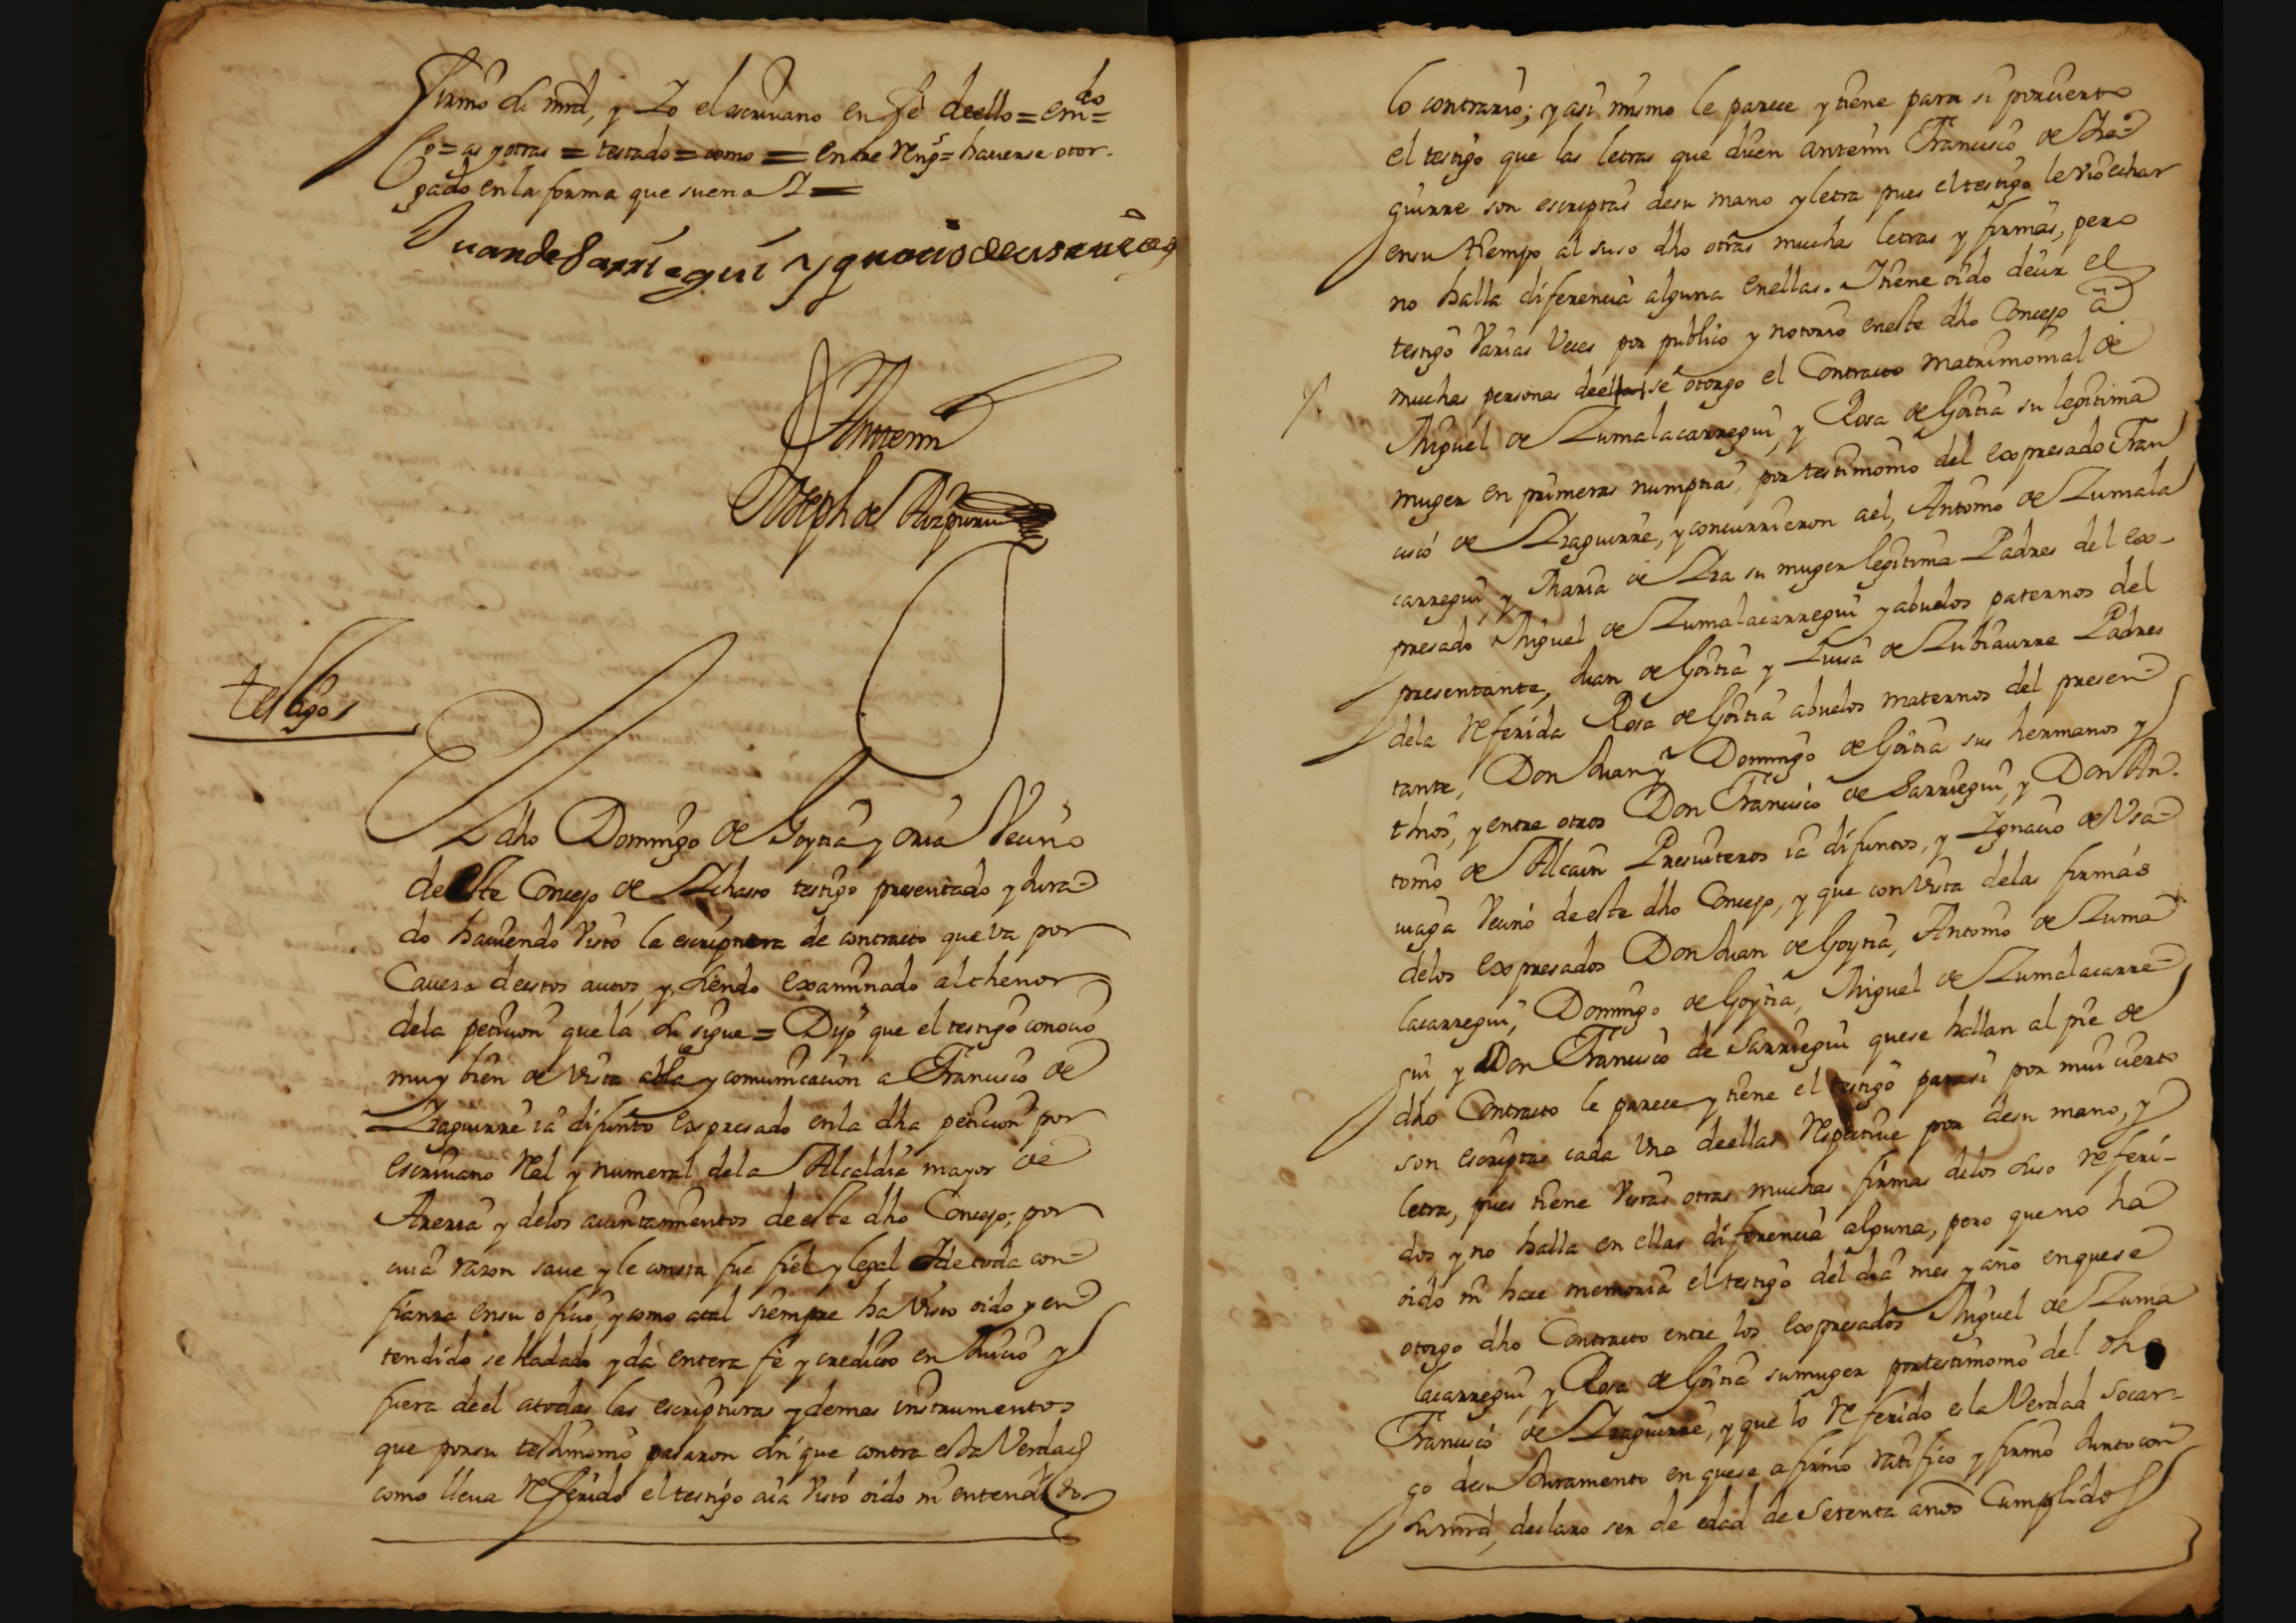 firmo su mrd, y Yo el escrivano en fe deello = em.do =
o = as y otras = testado = como = entre reng.s = haverse otor-
gado en la forma que suena
Juan de Sarriegui Ygnacio de usauiaga
Antemi
Joseph de Aizpuru
testigo
El dho Domingo de Goytia y oria Vecino
de este Concejo de testigo presentado y Jura-
do haviendo visto la escriptura de contracto que va por
Cavera de estos autos, y siendo examinado al thenor
dela peticion que la sigue = Dijo que el testigo conocio
muy bien de vista abla y comunicacion a Francisco de
Yraguirre ia difunto expresado en la dha peticion por
escrivano Real y numeral dela Alcaldia mayor de
Areria y delos aiuntamientos de este dho Concejo; por
cuia razon save y le consta fue fiel y legal y de toda con-
fianza en su oficio, y como atal siempre ha visto oido y en-
tendido se ha dado y da entera fe y credito en Juicio y
fuera de el atodas las escripturas y demas instrumentos
que por su testimonio pasaron sin que contra esta Verdad
como lleva Referido el testigo aia visto oido ni entendido
lo contrario; y asi mismo le parece y tiene para si por cierto
el testigo que las letras que dicen antemi Francisco de Yra-
guirre son escriptas de su mano y letra pues el testigo le vio echar
en su tiempo al suso dho otras muchas letras y firmas, pero
no halla diferencia alguna en ellas. Y tiene oido decir el
testigo Varias Veces por publico y notorio en este dho Concejo a
muchas personas de el se otorgo el Contracto Matrimonial de
Miguel de Zumalacarregui, y Rosa de Goitia su legitima
muger en primeras numptias, por testimonio del expresado Fran
cisco de Yraguirre, y concurrieron a el, Antonio de Zumala
carregui, y Maria de su muger legitima Padres del ex-
presado Miguel de Zumalacarregui y abuelos paternos del
presentante, Juan de Goitia y Luisa de Padres
dela Referida Rosa de Goitia abuelos maternos del presen-
tante, Don Juan y Domingo de Goitia sus hermanos y
thios, y entre otros Don Francisco de Sarriegui, y Don An-
tonio de Alcain Presviteros ia difuntos, y Ygnacio de Usa-
uiaga Vecino de este dho Concejo, y que con vista delas firmas
delos expresados Don Juan de Goytia, Antonio de Zuma
lacarregui, Domingo de Goytia, Miguel de Zumalacarre-
gui, y Don Francisco de Sarriegui que se hallan al pie de
dho Contracto le parece y tiene el testigo para si por mui cierto
son escriptas cada una de ellas Respective por de su mano, y
letra, pues tiene vistas otras muchas firmas delos suso referi-
dos y no halla en ellas diferencia alguna, pero que no ha
oido ni hace memoria el testigo del dia mes y año en que se
otorgo dho Contracto entre los expresados Miguel de Zuma
lacarregui, y Rosa de Goitia su muger por testimonio del dho
Francisco de Yraguirre, y que lo Referido es la Verdad socar-
go de su Juramento en que se afirmo ratifico y firmo Junto con
su mrd, declaro ser de edad de Setenta años Cumplidos